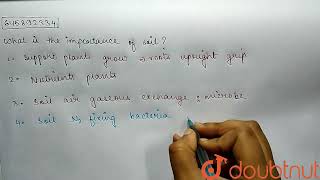 645892334
What is the importance of soil?
1- Support plants grow → roots upright grip
2- Nutrients plants
3- Soil air gaseous exchange : microbe
4- Soil N₂ fixing bacteria
doubtnut